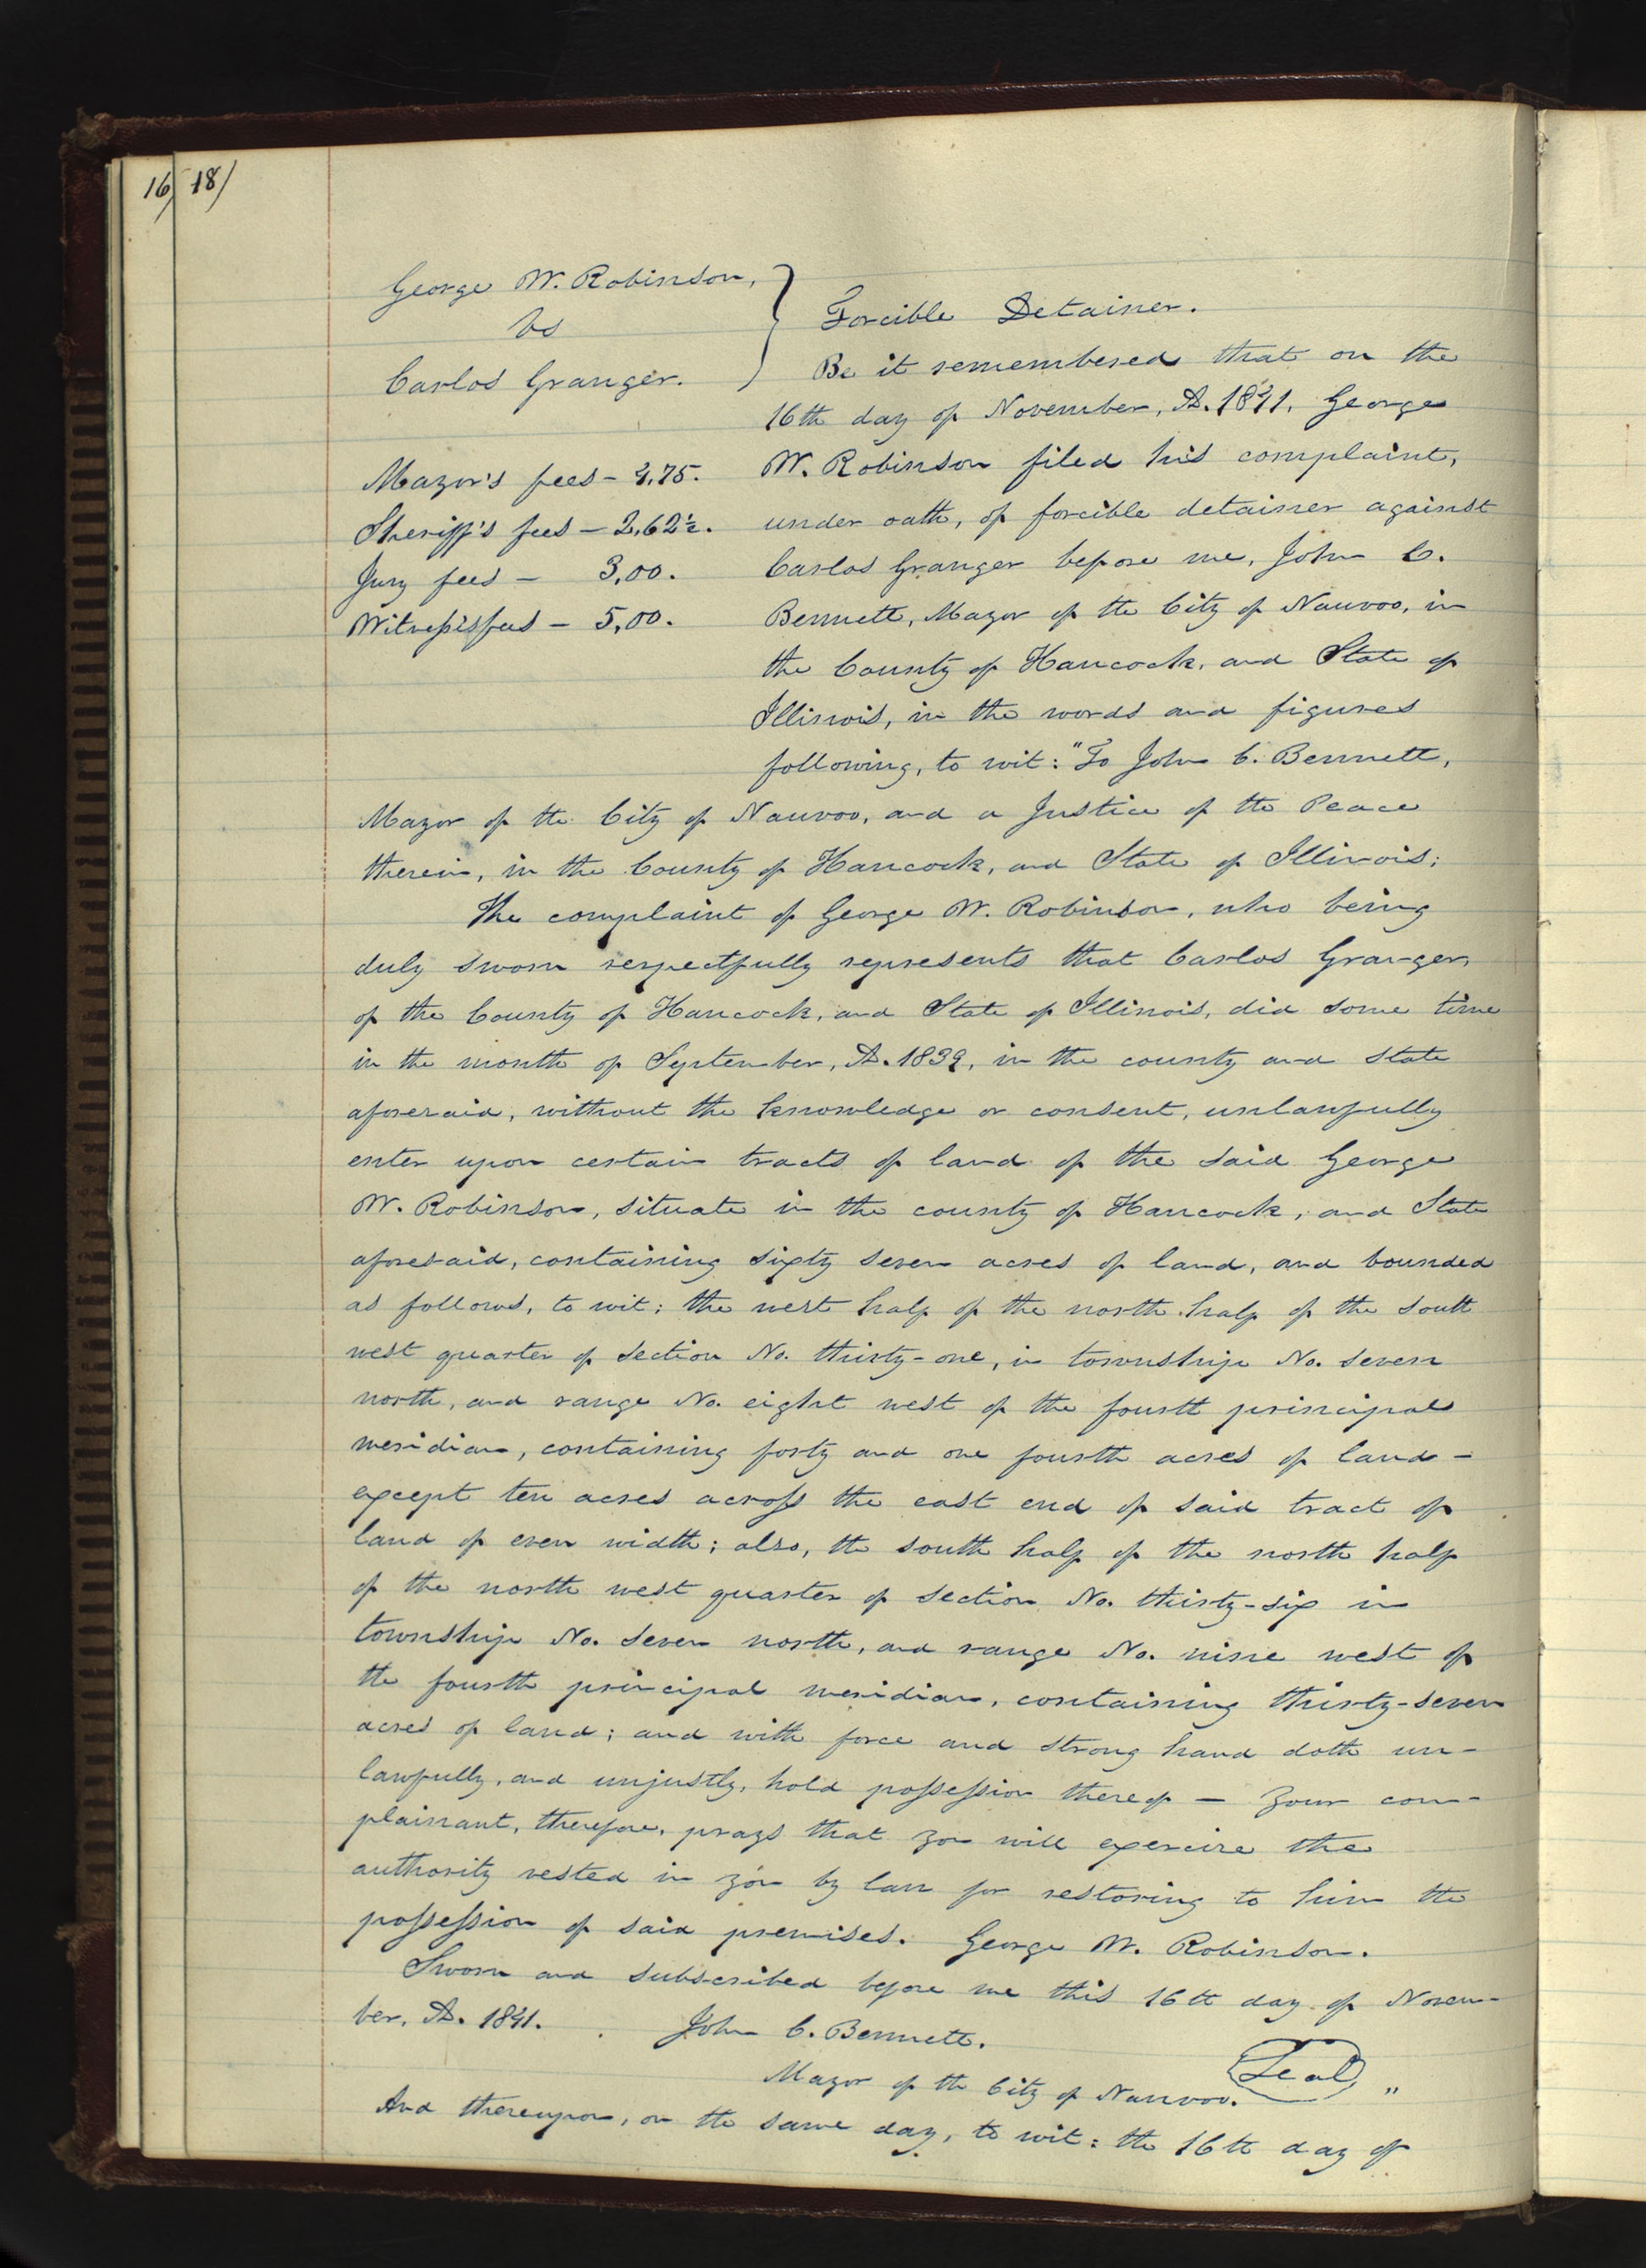 16/ 18/
George W. Robinson,
vs
Carlos Granger.
Forcible Detainer.
Be it remembered that on the
16th day of November, A. 1841, George
W. Robinson filed his complaint,
under oath, of forcible detainer against
Carlos Granger before me, John C.
Bennett, Mayor of the City of Nauvoo, in
the County of Hancock, and State of
Illinois, in the words and figures
following, to wit: "To John C. Bennett,
Mayor's fees - 4,75.
Sheriff's fees - 2,62½.
Jury fees - 3,00.
Witness's fees - 5,00.
Mayor of the City of Nauvoo, and a Justice of the Peace
therein, in the County of Hancock, and State of Illinois:
The complaint of George W. Robinson, who being
duly sworn respectfully represents that Carlos Granger,
of the County of Hancock, and State of Illinois, did some time
in the month of September, A. 1839, in the county and state
aforesaid, without the knowledge or consent, unlawfully
enter upon certain tracts of land of the said George
W. Robinson, situate in the county of Hancock, and State
aforesaid, containing sixty seven acres of land, and bounded
as follows, to wit: the west half of the north half of the south
west quarter of section No. thirty-one, in township No. seven
north, and range No. eight west of the fourth principal
meridian, containing forty and one fourth acres of land -
except ten acres across the east end of said tract of
land of even width; also, the south half of the north half
of the north west quarter of section No. thirty-six in
township No. seven north, and range No. nine west of
the fourth principal meridian, containing thirty-seven
acres of land; and with force and strong hand doth un-
lawfully, and unjustly, hold possession thereof - Your com-
plainant, therefore, prays that you will exercise the
authority vested in you by law for restoring to him the
possession of said premises. George W. Robinson.
Sworn and subscribed before me this 16th day of Novem-
ber, A. 1841. John C. Bennett.
Mayor of the City of Nauvoo. Seal "
And thereupon, on the same day, to wit: the 16th day of